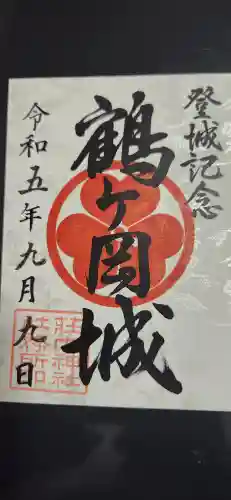 登城記念
鶴ヶ岡城
令和五年九月九日
荘内神社